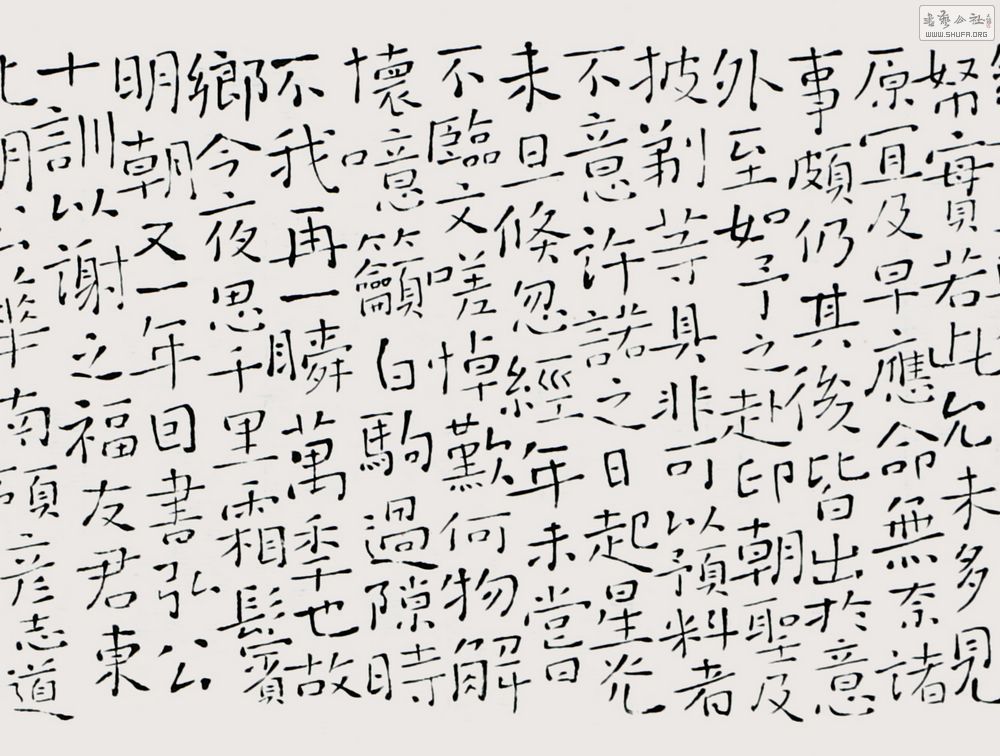 帑實若此允未多見
原宜及早應命無奈諸
事頗仍其後皆出於意
外至如予之赴印朝聖及
披剃等具非可以預料者
不意許諾之日起星光
未旦倏忽經年未嘗
不臨文嗟悼歎何物解
懷噫籲白駒過隙時
不我再一瞬萬季也故
鄉今夜思千里霜鬢
明朝又一年回書弘公
十訓以謝之福友君東
華南碩彥志道
書藝公社
WWW.SHUFA.ORG